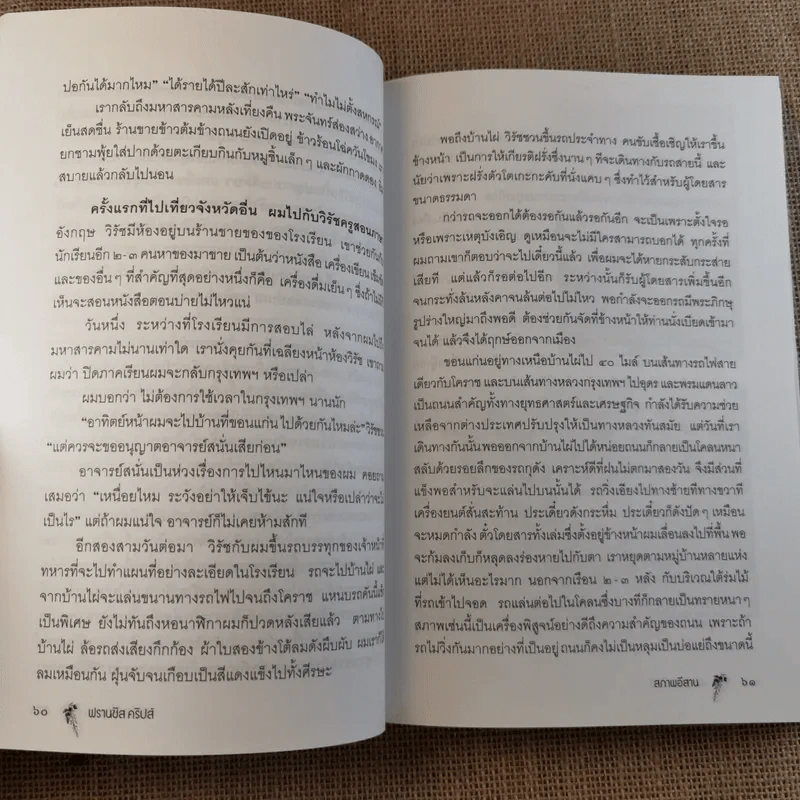 ปอกันได้มากไหม” “ได้รายได้ปีละสักเท่าไหร่” “ทำไมไม่ตั้งสหกรณ์
เรากลับถึงมหาสารคามหลังเที่ยงคืน พระจันทร์ส่องสว่าง
เย็นสดชื่น ร้านขายข้าวต้มข้างถนนยังเปิดอยู่ ข้าวร้อนโฉ่ควันโขมง
ยกชามพุ้ยใส่ปากด้วยตะเกียบกินกับหมูชิ้นเล็กๆ และผักกาดดอง
สบายแล้วกลับไปนอน
ครั้งแรกที่ไปเที่ยวจังหวัดอื่น ผมไปกับวิรัชครูสอนภาษา
อังกฤษ วิรัชมีห้องอยู่บนร้านขายของของโรงเรียน เขาช่วยกันกับ
นักเรียนอีก ๒-๓ คนหาของมาขาย เป็นต้นว่าหนังสือ เครื่องเขียน
และของอื่นๆ ที่สำคัญที่สุดอย่างหนึ่งก็คือ เครื่องดื่มเย็นๆ ซึ่งถ้าไม่มี
เห็นจะสอนหนังสือตอนบ่ายไม่ไหวแน่
วันหนึ่ง ระหว่างที่โรงเรียนมีการสอบไล่ หลังจากผมไป
มหาสารคามไม่นานเท่าใด เรานั่งคุยกันที่เฉลียงหน้าห้องวิรัช เขาถาม
ผมว่า ปิดภาคเรียนผมจะกลับกรุงเทพฯ หรือเปล่า
ผมบอกว่า ไม่ต้องการใช้เวลาในกรุงเทพฯ นานนัก
“อาทิตย์หน้าผมจะไปบ้านที่ขอนแก่น ไปด้วยกันไหมล่ะ” วิรัชชวน
“แต่ควรจะขออนุญาตอาจารย์สนั่นเสียก่อน”
อาจารย์สนั่นเป็นห่วงเรื่องการไปไหนมาไหนของผม คอยถาม
เสมอว่า “เหนื่อยไหม ระวังอย่าให้เจ็บไข้นะ แน่ใจหรือเปล่าว่าจะไม่
เป็นไร” แต่ถ้าผมแน่ใจ อาจารย์ก็ไม่เคยห้ามสักที
อีกสองสามวันต่อมา วิรัชกับผมขึ้นรถบรรทุกของเจ้าหน้าที่
ทหารที่จะไปทำแผนที่อย่างละเอียดในโรงเรียน รถจะไปบ้านไผ่ และ
จากบ้านไผ่จะแล่นขนานทางรถไฟไปจนถึงโคราช แหนบรถคันนี้แข็ง
เป็นพิเศษ ยังไม่ทันถึงหอนาฬิกาผมก็ปวดหลังเสียแล้ว ตามทางไป
บ้านไผ่ ล้อรถส่งเสียงกึกก้อง ผ้าใบสองข้างโต้ลมดังผึบผับ ผมเราก็โต้
ลมเหมือนกัน ฝุ่นจับจนเกือบเป็นสีแดงแข็งไปทั้งศีรษะ
๖๐ ฟรานซิส คริปส์
พอถึงบ้านไผ่ วิรัชชวนขึ้นรถประจำทาง คนขับเชื้อเชิญให้เราขึ้น
ข้างหน้า เป็นการให้เกียรติฝรั่งซึ่งนานๆ ที่จะเดินทางกับรถสายนี้ และ
นัยว่าเพราะฝรั่งตัวโตเกะกะคับที่นั่งแคบๆ ซึ่งทำไว้สำหรับผู้โดยสาร
ขนาดธรรมดา
กว่ารถจะออกได้ต้องรอกันแล้วรอกันอีก จะเป็นเพราะตั้งใจรอ
หรือเพราะเหตุบังเอิญ ดูเหมือนจะไม่มีใครสามารถบอกได้ ทุกครั้งที่
ผมถามเขาก็ตอบว่าจะไปเดี๋ยวนี้แล้ว เพื่อผมจะได้หายกระสับกระส่าย
เสียที แต่แล้วก็รอต่อไปอีก ระหว่างนั้นก็รับผู้โดยสารเพิ่มขึ้นอีก
จนกระทั่งล้นหลังคาจนล้นต่อไปไม่ไหว พอกำลังจะออกรถมีพระภิกษุ
รูปร่างใหญ่มาถึงพอดี ต้องช่วยกันจัดที่ข้างหน้าให้ท่านนั่งเบียดเข้ามา
จนได้ แล้วจึงได้ฤกษ์ออกจากเมือง
ขอนแก่นอยู่ทางเหนือบ้านไผ่ไป ๔๐ ไมล์ บนเส้นทางรถไฟสาย
เดียวกับโคราช และบนเส้นทางหลวงกรุงเทพฯ ไปอุดร และพรมแดนลาว
เป็นถนนสำคัญทั้งทางยุทธศาสตร์และเศรษฐกิจ กำลังได้รับความช่วย
เหลือจากต่างประเทศปรับปรุงให้เป็นทางหลวงทันสมัย แต่วันที่เรา
เดินทางกันนั้น พอออกจากบ้านไผ่ไปได้หน่อยถนนก็กลายเป็นโคลนหนา
สลับด้วยรอยลึกของรถกุดัง เคราะห์ดีที่ฝนไม่ตกมาสองวัน จึงมีส่วนที่
แข็งพอสำหรับจะแล่นไปบนนั้นได้ รถวิ่งเอียงไปทางซ้ายทีทางขวาที
เครื่องยนต์สั่นสะท้าน ประเดี๋ยวดังกระหึ่ม ประเดี๋ยวก็ดังปัดๆ เหมือน
จะหมดกำลัง ตั๋วโดยสารทั้งเล่มซึ่งตั้งอยู่ข้างหน้าผมเลื่อนลงไปที่พื้น พอ
จะก้มลงเก็บก็หลุดลงร่องหายไปกับตา เราหยุดตามหมู่บ้านหลายแห่ง
แต่ไม่ได้เห็นอะไรมาก นอกจากเรือน ๒-๓ หลัง กับบริเวณใต้ร่มไม้
ที่รถเข้าไปจอด รถแล่นต่อไปในโคลนซึ่งบางทีก็กลายเป็นทรายหนาๆ
สภาพเช่นนี้เป็นเครื่องพิสูจน์อย่างดีถึงความสำคัญของถนน เพราะถ้า
รถไม่วิ่งกันมากอย่างที่เป็นอยู่ ถนนก็คงไม่เป็นหลุมเป็นบ่อแย่ถึงขนาดนี้
สภาพอีสาน ๖๑